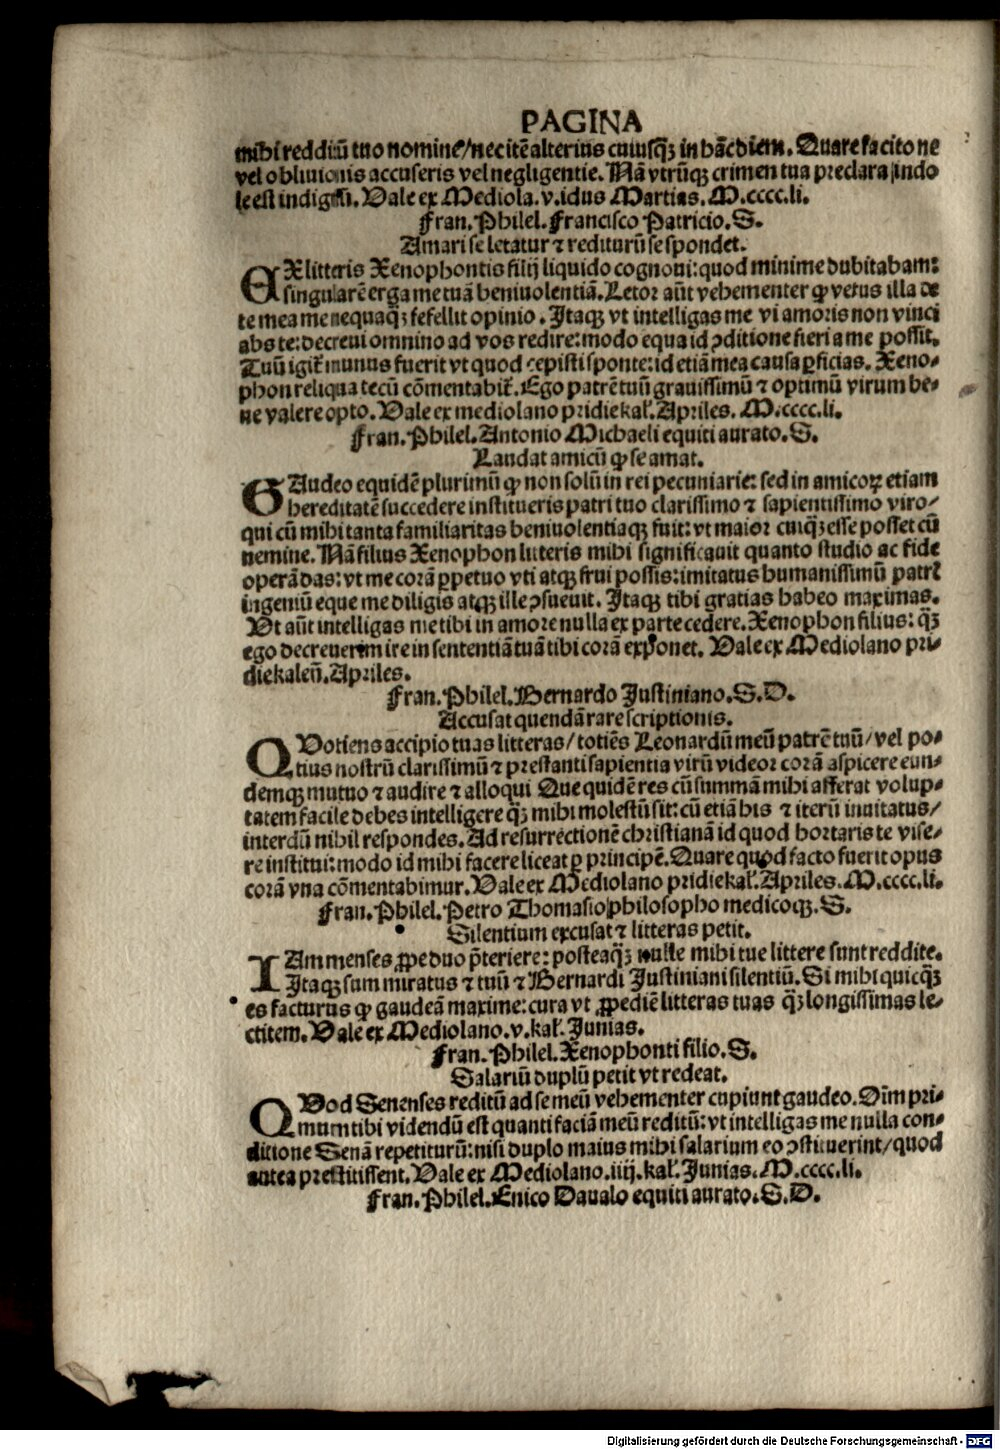 PAGINA
mihi redditū tuo nomine/nec itē alterius cuiusqꝫ in hāc diem. Quare facito ne
vel obliuionis accuseris vel negligentie. Nā vtrūqꝫ crimen tua preclara indo
le est indignū. Vale ex Mediola. v. idus Martias. M.cccc.li.
Fran. Philel. Francisco Patricio. S.
Amari se letatur ⁊ rediturū se spondet.
EX litteris Xenophontis filij liquido cognoui: quod minime dubitabam:
singularē erga me tuā beniuolentiā. Letor aūt vehementer ꝙ vetus illa de
te mea me nequaqꝫ fefellit opinio. Itaqꝫ vt intelligas me vi amoris non vinci
abs te: decreui omnino ad vos redire: modo equa id ↄditione fieri a me possit.
Tuū igit᷑ munus fuerit vt quod cepisti sponte: id etiā mea causa ꝑficias. Xeno-
phon reliqua tecū cōmentabit᷑. Ego patrē tuū grauissimū ⁊ optimū virum be-
ne valere opto. Vale ex mediolano pridie kaƚ. Apriles. M.cccc.li.
Fran. Philel. Antonio Michaeli equiti aurato. S.
Laudat amicū ꝙ se amat.
GAudeo equidē plurimū ꝙ non solū in rei pecuniarie: sed in amicoꝝ etiam
hereditatē succedere institueris patri tuo clarissimo ⁊ sapientissimo viro/
qui cū mihi tanta familiaritas beniuolentiaqꝫ fuit: vt maior cuiqꝫ esse posset cū
nemine. Nā filius Xenophon litteris mihi significauit quanto studio ac fide
operā das: vt me corā ꝑpetuo vti atqꝫ frui possis: imitatus humanissimū patrē
ingeniū eque me diligis atqꝫ ille ↄsueuit. Itaqꝫ tibi gratias habeo maximas.
Vt aūt intelligas me tibi in amore nulla ex parte cedere. Xenophon filius: qꝫ
ego decreuerim ire in sententiā tuā tibi corā exponet. Vale ex Mediolano pri-
die kaleñ. Apriles.
Fran. Philel. Bernardo Iustiniano. S. D.
Accusat quendā rare scriptionis.
QVotiens accipio tuas litteras/totiēs Leonardū meū patrē tuū/vel po-
tius nostrū clarissimū ⁊ prestanti sapientia virū videor corā aspicere eun-
demqꝫ mutuo ⁊ audire ⁊ alloqui Que quidē res cū summā mihi afferat volup-
tatem facile debes intelligere qꝫ mihi molestū sit: cū etiā bis ⁊ iterū inuitatus/
interdū nihil respondes. Ad resurrectionē christianā id quod hortaris te vise-
re institui: modo id mihi facere liceat ꝑ principē. Quare quod facto fuerit opus
corā vna cōmentabimur. Vale ex Mediolano pridie kaƚ. Apriles. M.cccc.li.
Fran. Philel. Petro Thomasio philosopho medicoqꝫ. S.
Silentium excusat ⁊ litteras petit.
IAm menses ꝓpe duo p̄teriere: posteaqꝫ nulle mihi tue littere sunt reddite.
Itaqꝫ sum miratus ⁊ tuū ⁊ Bernardi Iustiniani silentiū. Si mihi quicqꝫ
es facturus ꝙ gaudeā maxime: cura vt ꝓpediē litteras tuas qꝫ longissimas le-
ctitem. Vale ex Mediolano. v. kaƚ. Iunias.
Fran. Philel. Xenophonti filio. S.
Salariū duplū petit vt redeat.
QVod Senenses reditū ad se meū vehementer cupiunt gaudeo. Oīm pri-
mum tibi videndū est quanti faciā meū reditū: vt intelligas me nulla con-
ditione Senā repetiturū: nisi duplo maius mihi salarium eo ↄstituerint/quod
antea prestitissent. Vale ex Mediolano. iiij. kaƚ. Iunias. M.cccc.li.
Fran. Philel. Enico Daualo equiti aurato. S. D.
Digitalisierung gefördert durch die Deutsche Forschungsgemeinschaft - DFG